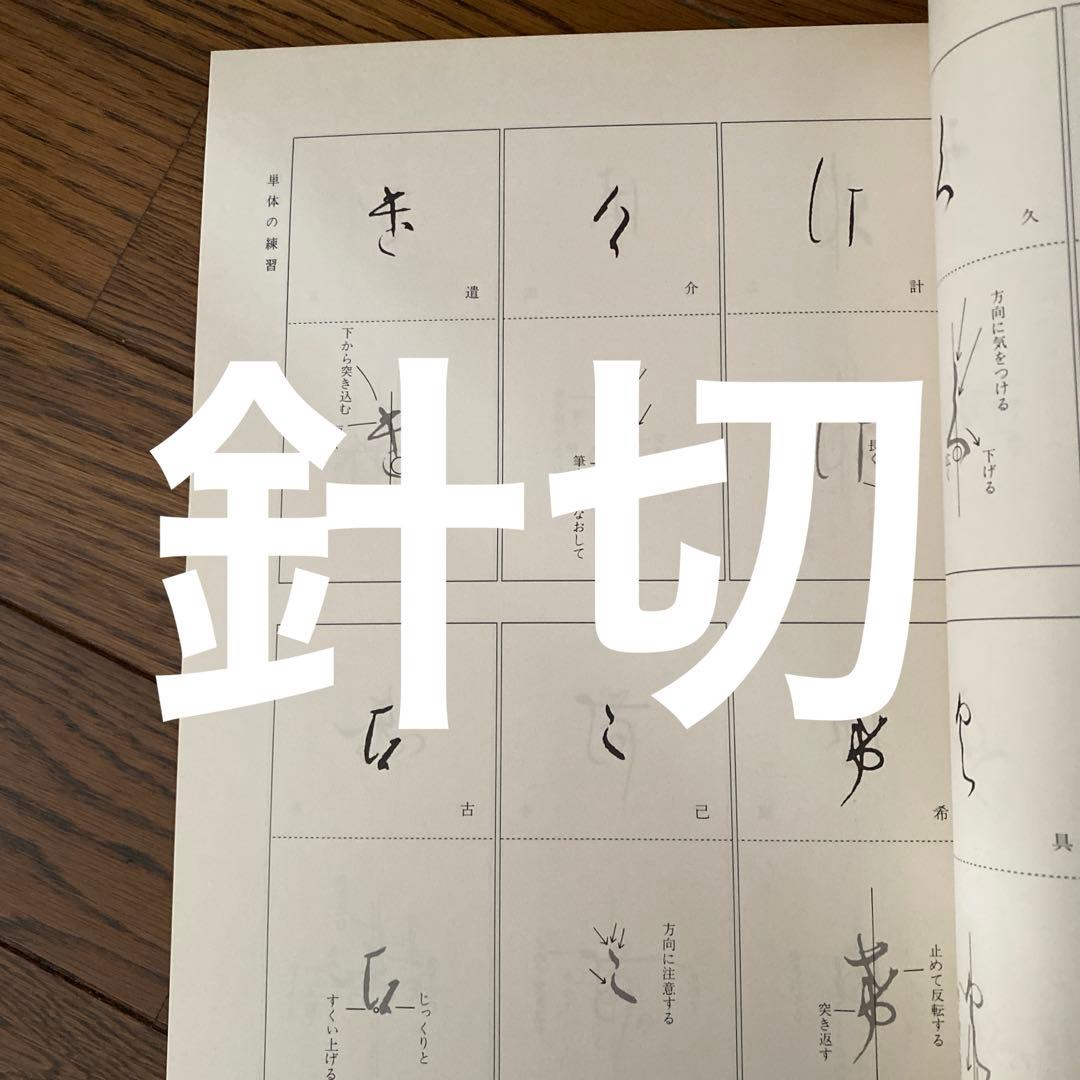 針切
久
方向に気をつける
下げる
具
計
長く
介
筆
なおして
遣
下から突き込む
希
止めて反転する
突き返す
己
方向に注意する
古
じっくりと
すくい上げる
単体の練習